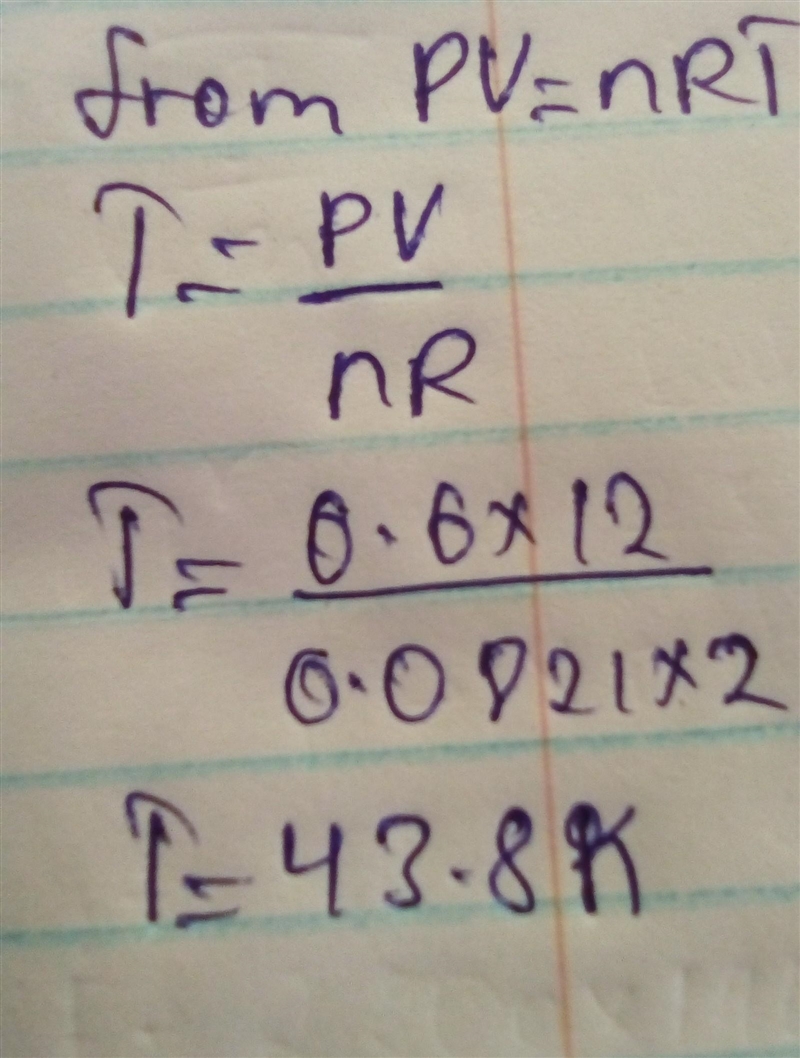 from PV=nRT
T= PV
nR
T= 0.6x12
0.0821x2
T=43.8K